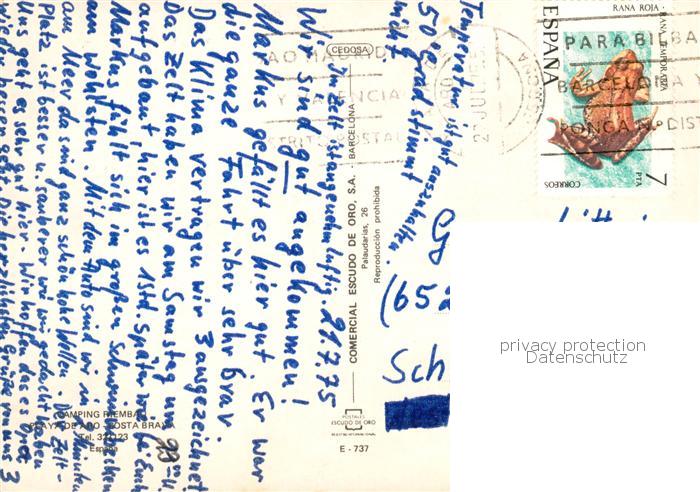 Im Zelt ist angenehm luftig. 21.7.75
Wir sind gut angekommen!
Markus gefällt es hier gut. Er war
die ganze Fahrt über sehr brav
Das Klima vertragen wir 3 ausgezeichnet
Das Zelt haben wir am Samstag um
aufgebaut, hier ist es 1 Std. später wie bei Euch
Markus fühlt sich im großen Schwimmbecken
am wohlsten. Mit dem Auto sind wir in Minuten
am Meer da sind ganz schön hohe Wellen. Der Zelt-
platz ist besser u. sauberer wie wir gedacht haben
Uns geht es sehr gut hier. Wir hoffen das es Oma
wieder besser geht. Die herzlichsten Grüße von uns 3
Temperatur ist gut auszuhalten
50 grad stimmt
nicht
(652
Sch
CEDOSA
COMERCIAL ESCUDO DE ORO, S.A. - BARCELONA
Palaudarias, 26
Reproducción prohibida
POSTALES
ESCUDO DE ORO
E - 737
CAMPING RIEMBAU
PLAYA DE ARO - COSTA BRAVA
Tel. 327123
España
ESPAÑA
RANA ROJA - RANA TEMPORARIA
CORREOS
7 PTA
PARA BILBA
BARCELONA
PONGA Nº DIST
privacy protection
Datenschutz